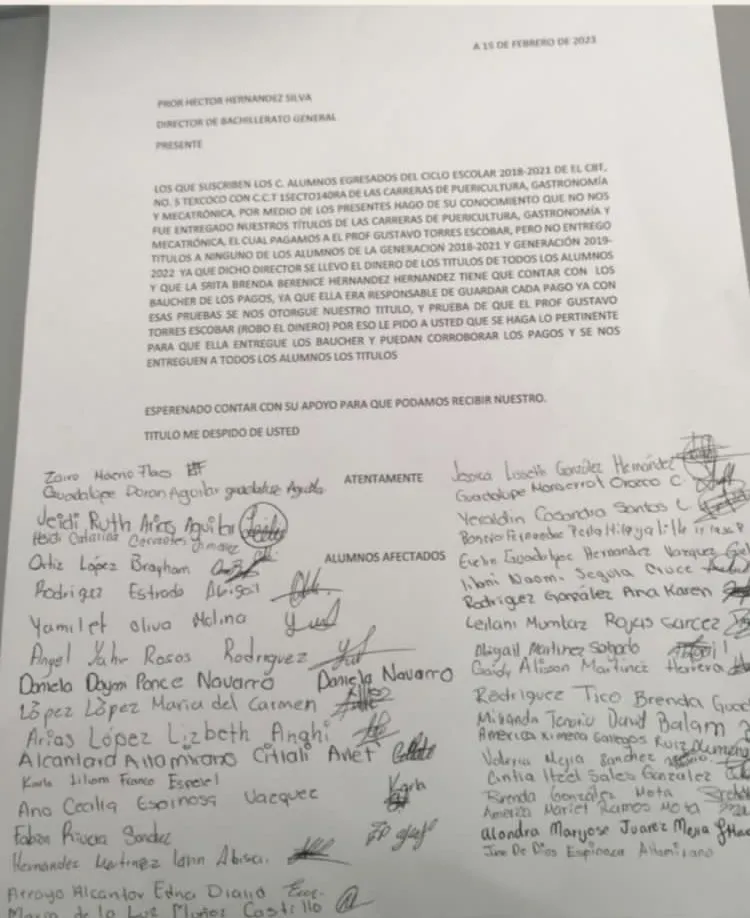 A 15 DE FEBRERO DE 2023
PROR HECTOR HERNANDEZ SILVA
DIRECTOR DE BACHILLERATO GENERAL
PRESENTE
LOS QUE SUSCRIBEN LOS C. ALUMNOS EGRESADOS DEL CICLO ESCOLAR 2018-2021 DE EL CBT,
NO. 5 TEXCOCO CON C.C.T 15ECTO140RA DE LAS CARRERAS DE PUERICULTURA, GASTRONOMÍA
Y MECATRÓNICA, POR MEDIO DE LOS PRESENTES HAGO DE SU CONOCIMIENTO QUE NO NOS
FUE ENTREGADO NUESTROS TÍTULOS DE LAS CARRERAS DE PUERICULTURA, GASTRONOMÍA Y
MECATRÓNICA, EL CUAL PAGAMOS A EL PROF GUSTAVO TORRES ESCOBAR, PERO NO ENTREGO
TITULOS A NINGUNO DE LOS ALUMNOS DE LA GENERACION 2018-2021 Y GENERACIÓN 2019-
2022 YA QUE DICHO DIRECTOR SE LLEVO EL DINERO DE LOS TITULOS DE TODOS LOS ALUMNOS
Y QUE LA SRITA BRENDA BERENICE HERNANDEZ HERNANDEZ TIENE QUE CONTAR CON LOS
BAUCHER DE LOS PAGOS, YA QUE ELLA ERA RESPONSABLE DE GUARDAR CADA PAGO YA CON
ESAS PRUEBAS SE NOS OTORGUE NUESTRO TITULO, Y PRUEBA DE QUE EL PROF GUSTAVO
TORRES ESCOBAR (ROBO EL DINERO) POR ESO LE PIDO A USTED QUE SE HAGA LO PERTINENTE
PARA QUE ELLA ENTREGUE LOS BAUCHER Y PUEDAN CORROBORAR LOS PAGOS Y SE NOS
ENTREGUEN A TODOS LOS ALUMNOS LOS TITULOS
ESPERENADO CONTAR CON SU APOYO PARA QUE PODAMOS RECIBIR NUESTRO.
TITULO ME DESPIDO DE USTED
ATENTAMENTE
ALUMNOS AFECTADOS
Guadalupe Duran Aguilar
Jeidi Ruth Arias Aguilar
Heidi Catarina
Ortiz López Brayham
Rodriguez Estrada Abigail
Yamilet Oliva Molina
Angel Yahir Rosas Rodriguez
Daniela Daym Ponce Navarro Daniela Navarro
López López Maria del Carmen
Arias López Lizbeth Anghi
Alcantara Altamirano Citlali Arlet
Karla Liliam Franco Esquivel Karla
Ana Cecilia Espinosa Vazquez
Fabian Rivera Sandez
Hernandez Martinez Iann
Arroyo Alcantar Edna Diana
Maria de la Luz Muñoz Castillo
Jessica Lisseth González Hernández
Guadalupe Monserrat Orozco C.
Yeraldin Casandra Santos L
Evelin Guadalupe Hernandez Vazquez
Naomi Segura Cruce
Rodriguez González Ana Karen
Leilani Mumtaz Rojas Garcez
Abigail Martinez
Gaidy Alisson Martinez Herrera
Rodriguez Tico Brenda
Miranda Tenorio David Balam
America Ximena Gallegos Ruiz
Valeria Mejia Sanchez
Cintia Itzel Sales Gonzalez
Brenda González Mota
America Mariel Ramos Mota
Alondra Maryose Juarez Mejia
De Dios Espinoza Altamirano